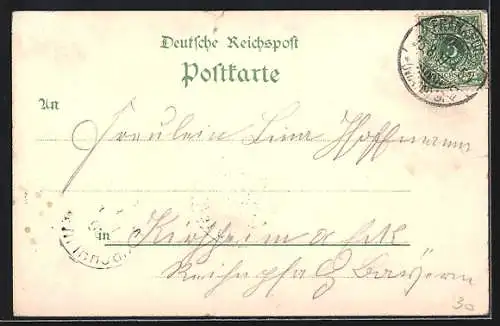 Deutsche Reichspost
Postkarte
An
Fräulein Lina Hoffmann
in Kirchheim a/Eck
Rheinpfalz Bayern
5
30